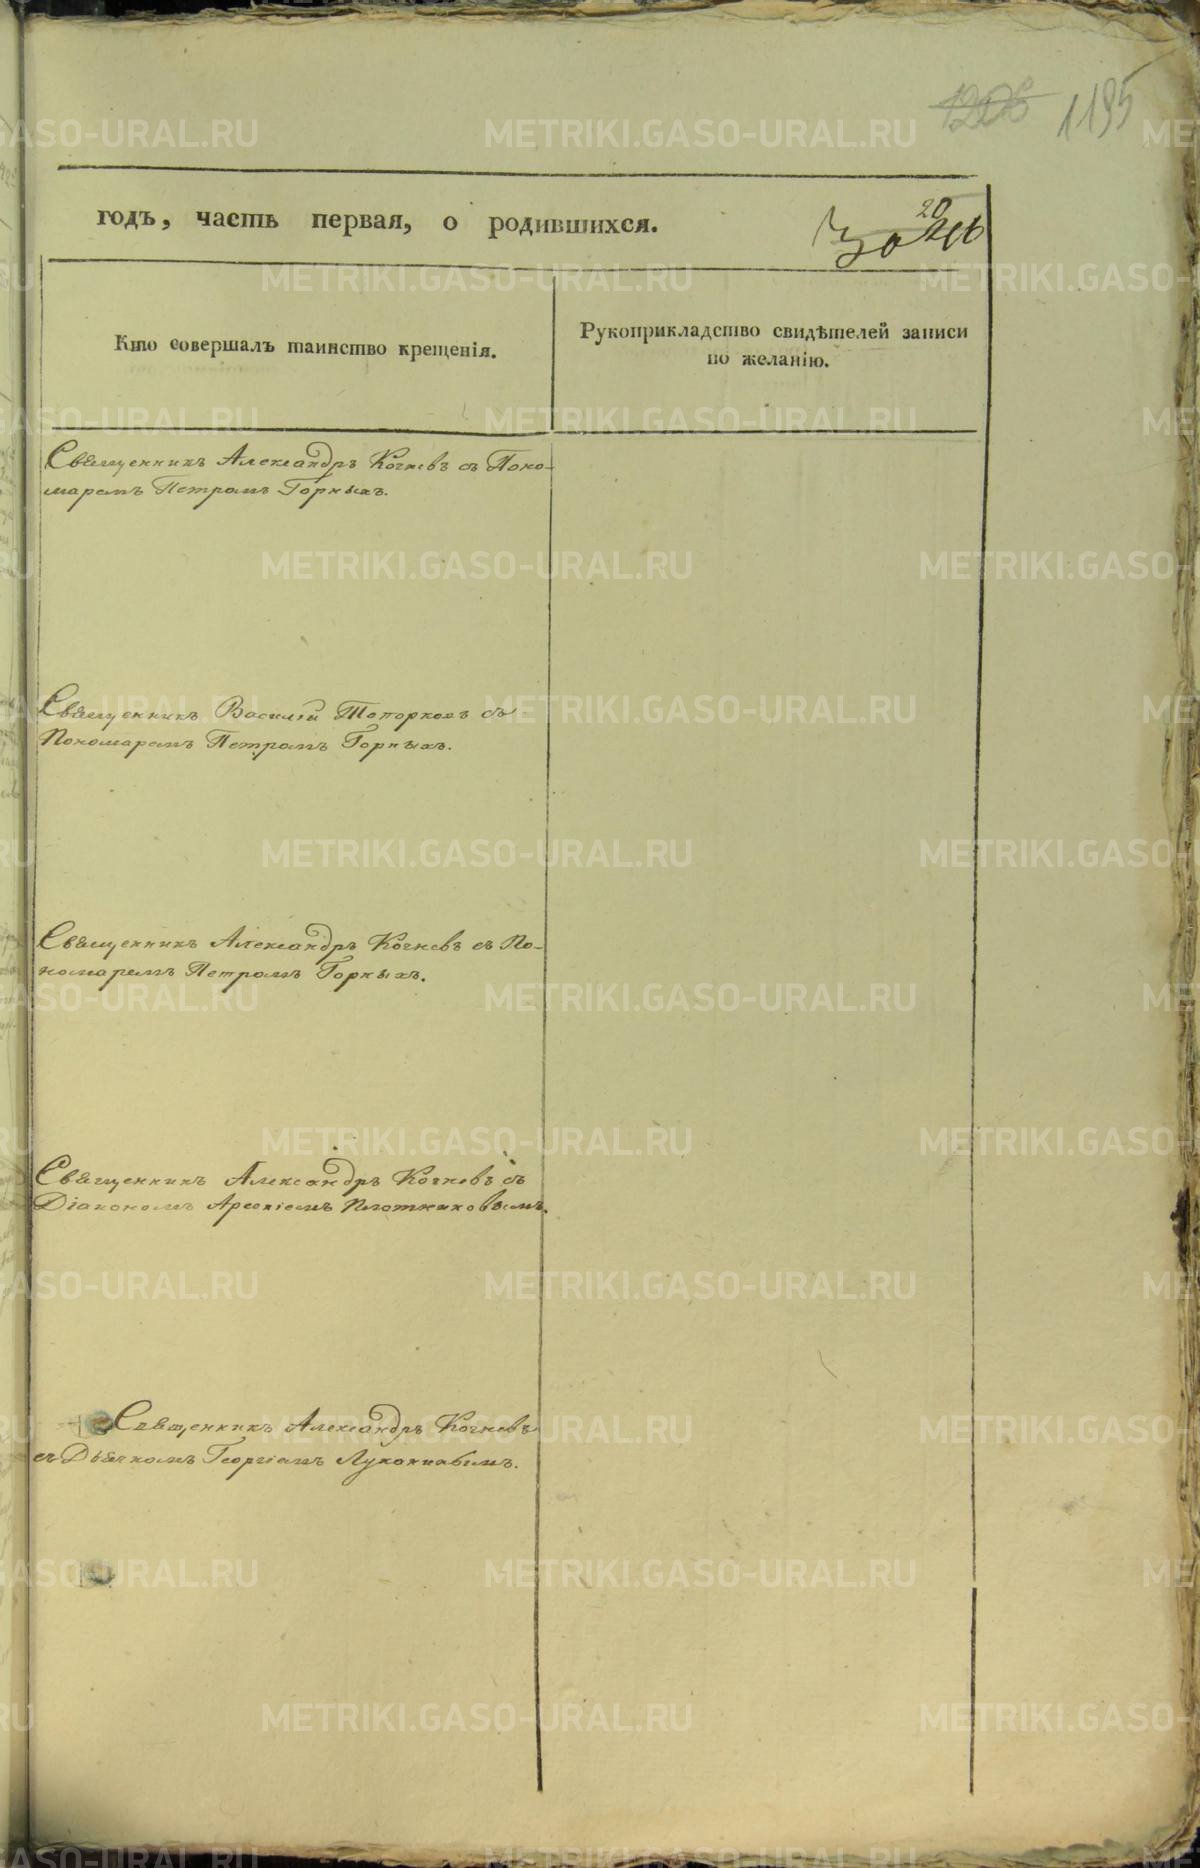 1195
годъ, часть первая, о родившихся.
20
Кто совершалъ таинство крещенія.
Рукоприкладство свидѣтелей записи
по желанію.
Священникъ Александръ Кочневъ съ Поно-
маремъ Петромъ Горныхъ.
Священникъ Василій Топорковъ съ
Пономаремъ Петромъ Горныхъ.
Священникъ Александръ Кочневъ съ По-
номаремъ Петромъ Горныхъ.
Священникъ Александръ Кочневъ съ
Діакономъ Арсеніемъ Плотниковымъ.
Священникъ Александръ Кочневъ
съ Дьячкомъ Георгіемъ
METRIKI.GASO-URAL.RU